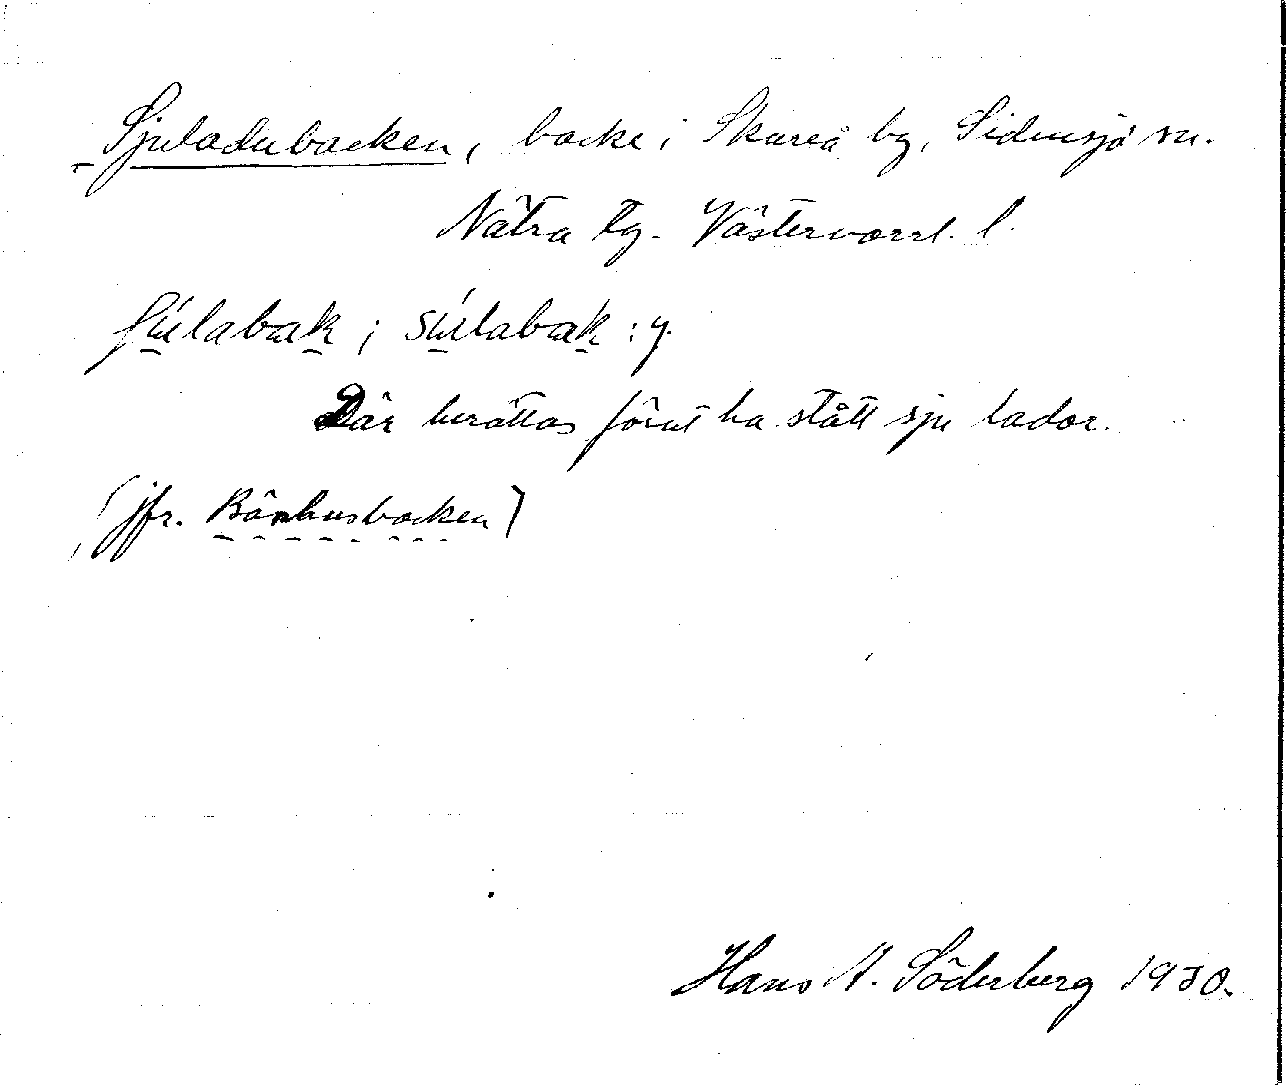 Sjuladubacken, backe i Skureå by, Sidensjö sn.
Nätra tg. Västernorrl. l.
ʃúlabak ; súlabak : y.
Där berättas förut ha stått sju lador.
(jfr. Bönhusbacken)
Hans A. Söderberg 1930.